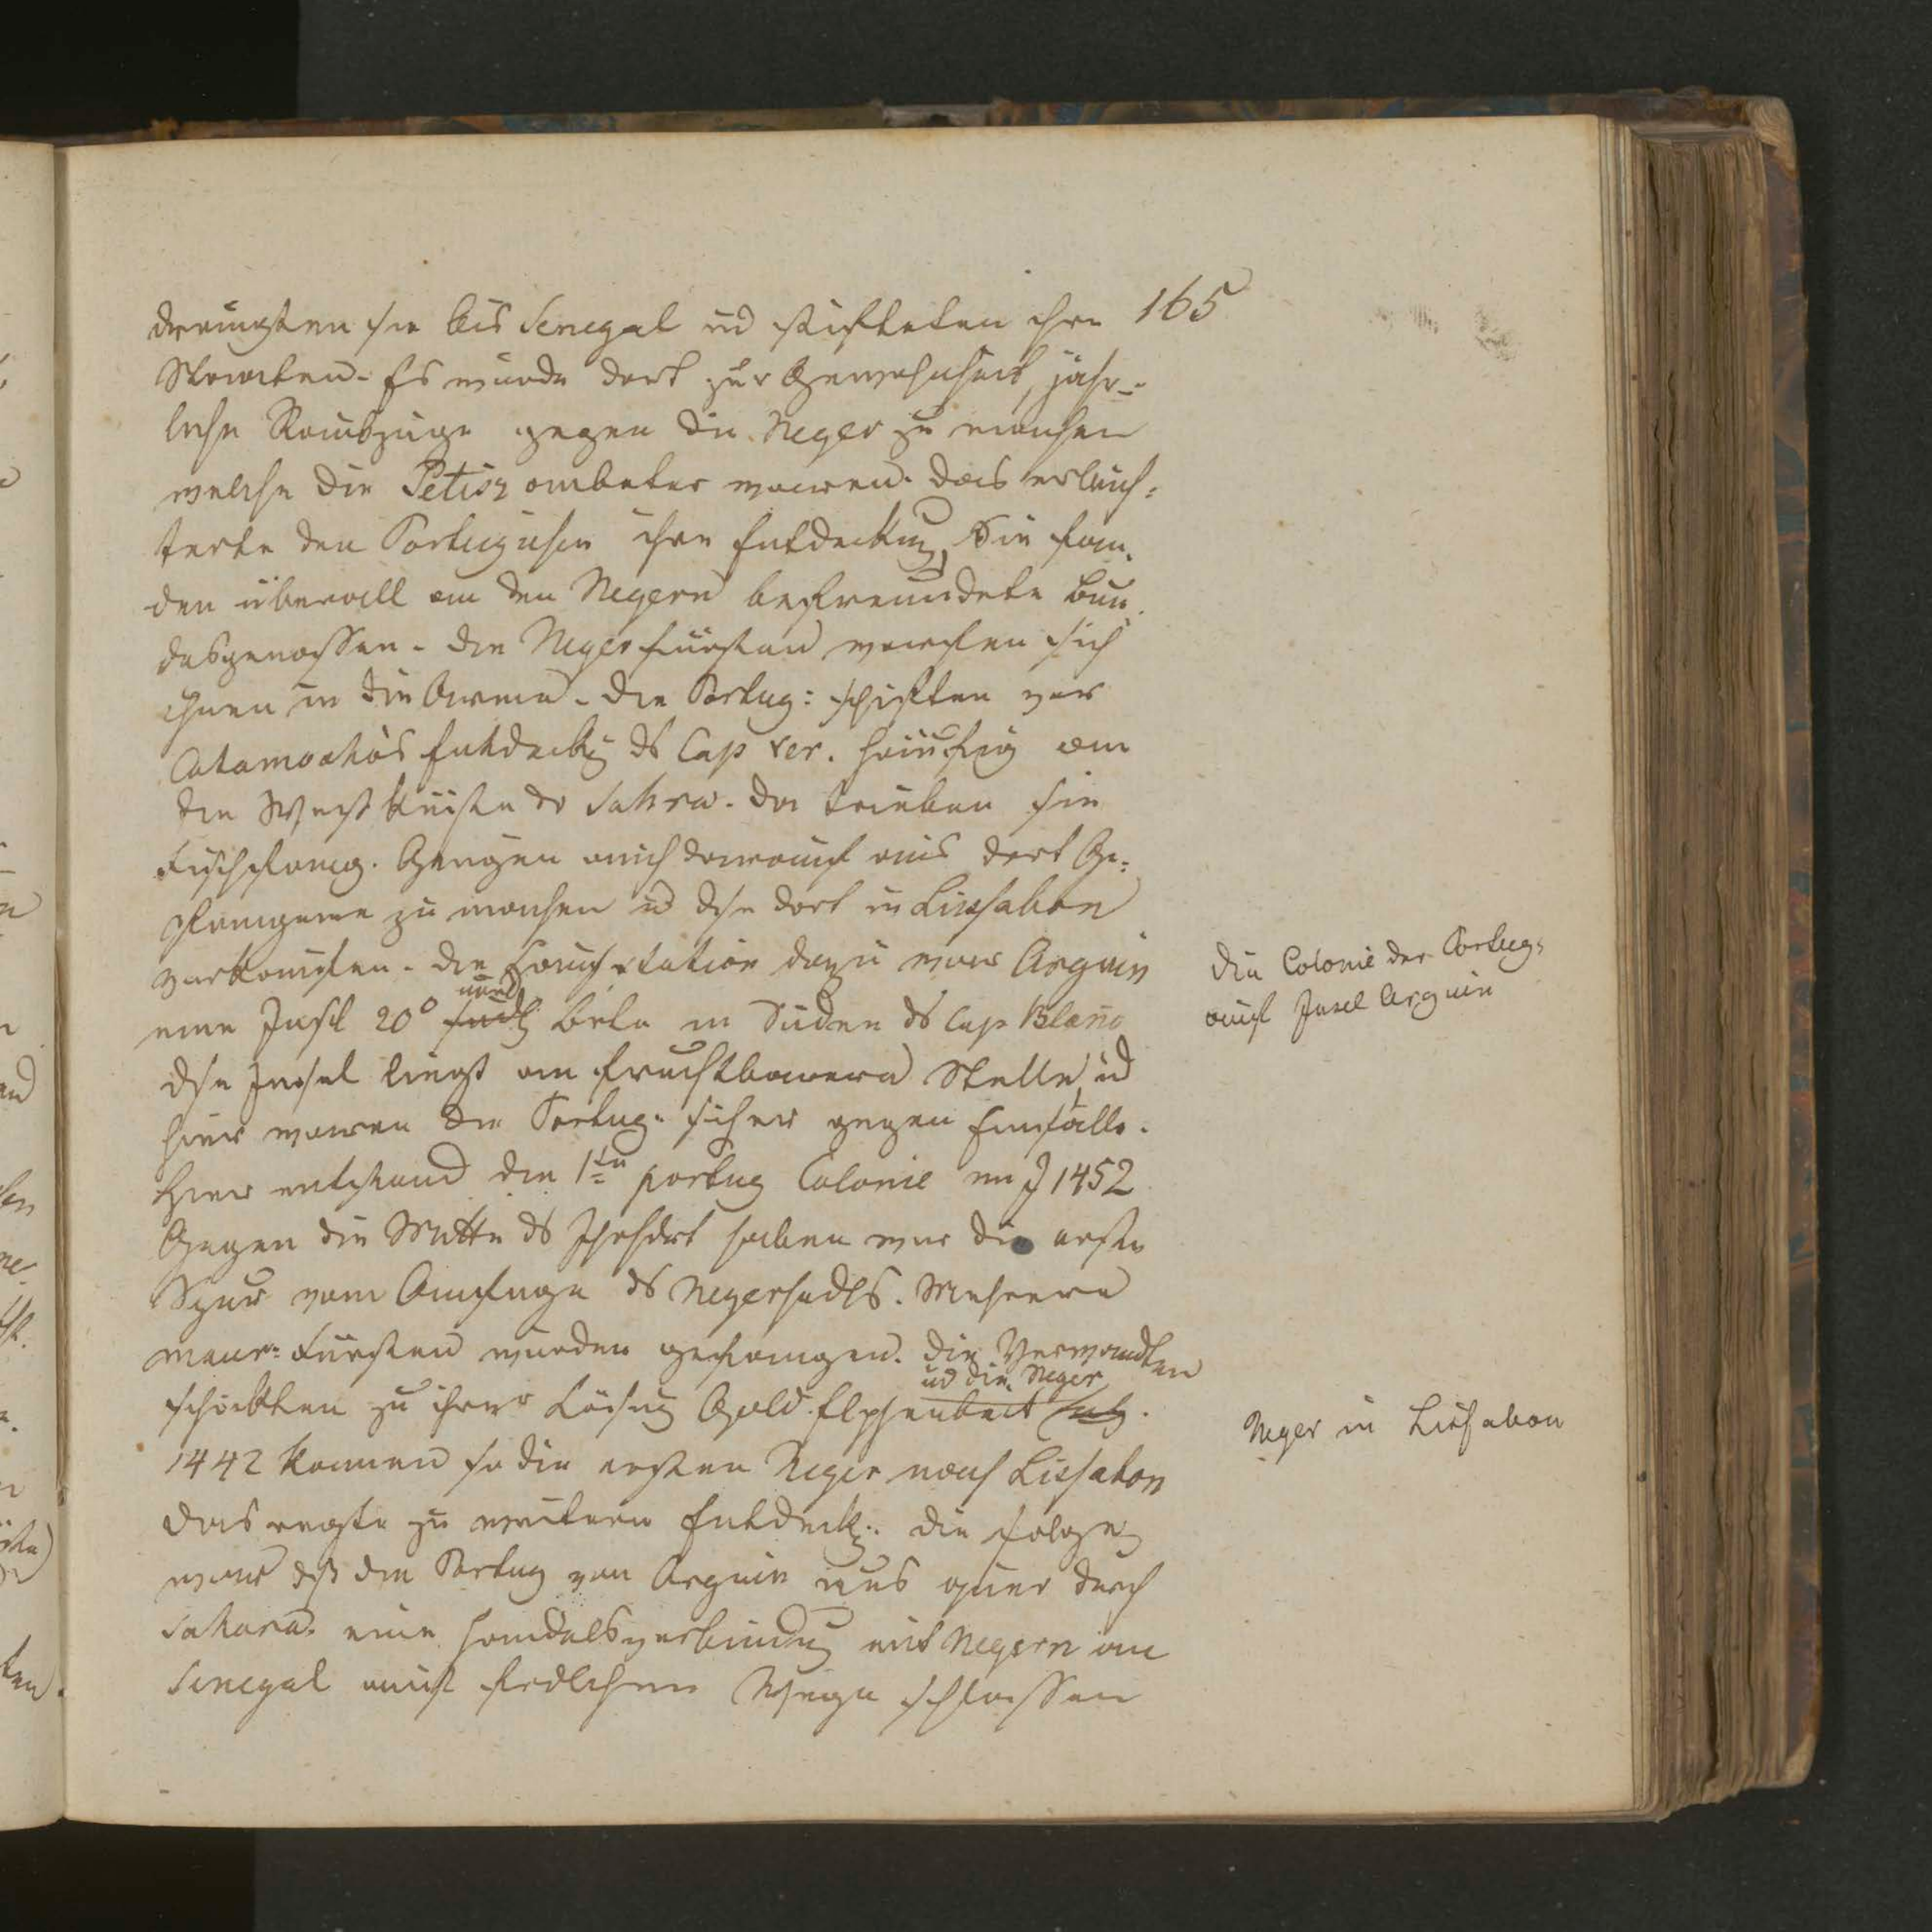 165
drangten sie bis Senegal ud stifteten ihre
Staaten. Es wurde dort zur Gewohnheit, jähr-
liche Raubzüge gegen die Neger zu machen
welche die Fetisz anbeter waren. das erleich-
terte den Portugisen ihre Entdeckung, Sie fan-
den überall an den Negern befreundete Bun-
desgenossen. die Negerfürsten warfen sich
ihnen in die Arme. die Portug: schifften vor
Catamostos Entdeckg ds Cap ver. häufig an
die Westküste dr Sahra. da trieben sie
Fischfang. Gingen auch darauf aus dort Ge-
fangene zu machen ud dse dort in Lissabon
verkauften. die Hauptstation dazu war Arguin
eine Insl 20° nörd Brte im Süden ds Cap Blanc
dse Insel liegt an fruchtbarern Stelle ud
hier waren die Portug: sicher gegen Einfälle.
Hier entstand die 1te portug Colonie im J 1452
Gegen die Mitte ds Jhrhdrt haben wir die erste
Spur vom Anfange ds Negerhndls. Mehrere
maur: Fürsten wurden gefangen. die Verwandten
ud die Neger
schickten zu ihrer Lösung Gold Elphenbein
1442 kamen so die ersten Neger nach Lissabon
das regte zu weitern Entdeck: die Folge
war dß die Portug von Arguin aus quer durch
Sahara eine Handelsverbindung mit Negern am
Senegal auf fridlichem Wege schlossen
die Colonie der Portug:
auf Insel Arguin
Neger in Lissabon